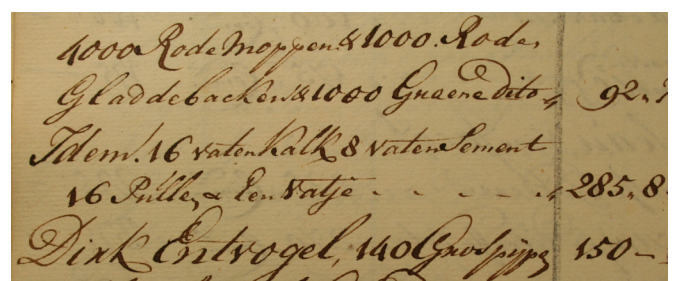 4000 Rode Moppen & 1000 Rode,
Gladdebacken & 1000 Graene Dito " 92"
Idem. 16 vaten Kalk 8 vaten Sement
16 Pulle, & Een vatje - - - - " 285" 8
Dirk Entvogel, 140 Gros pijpe 150 -